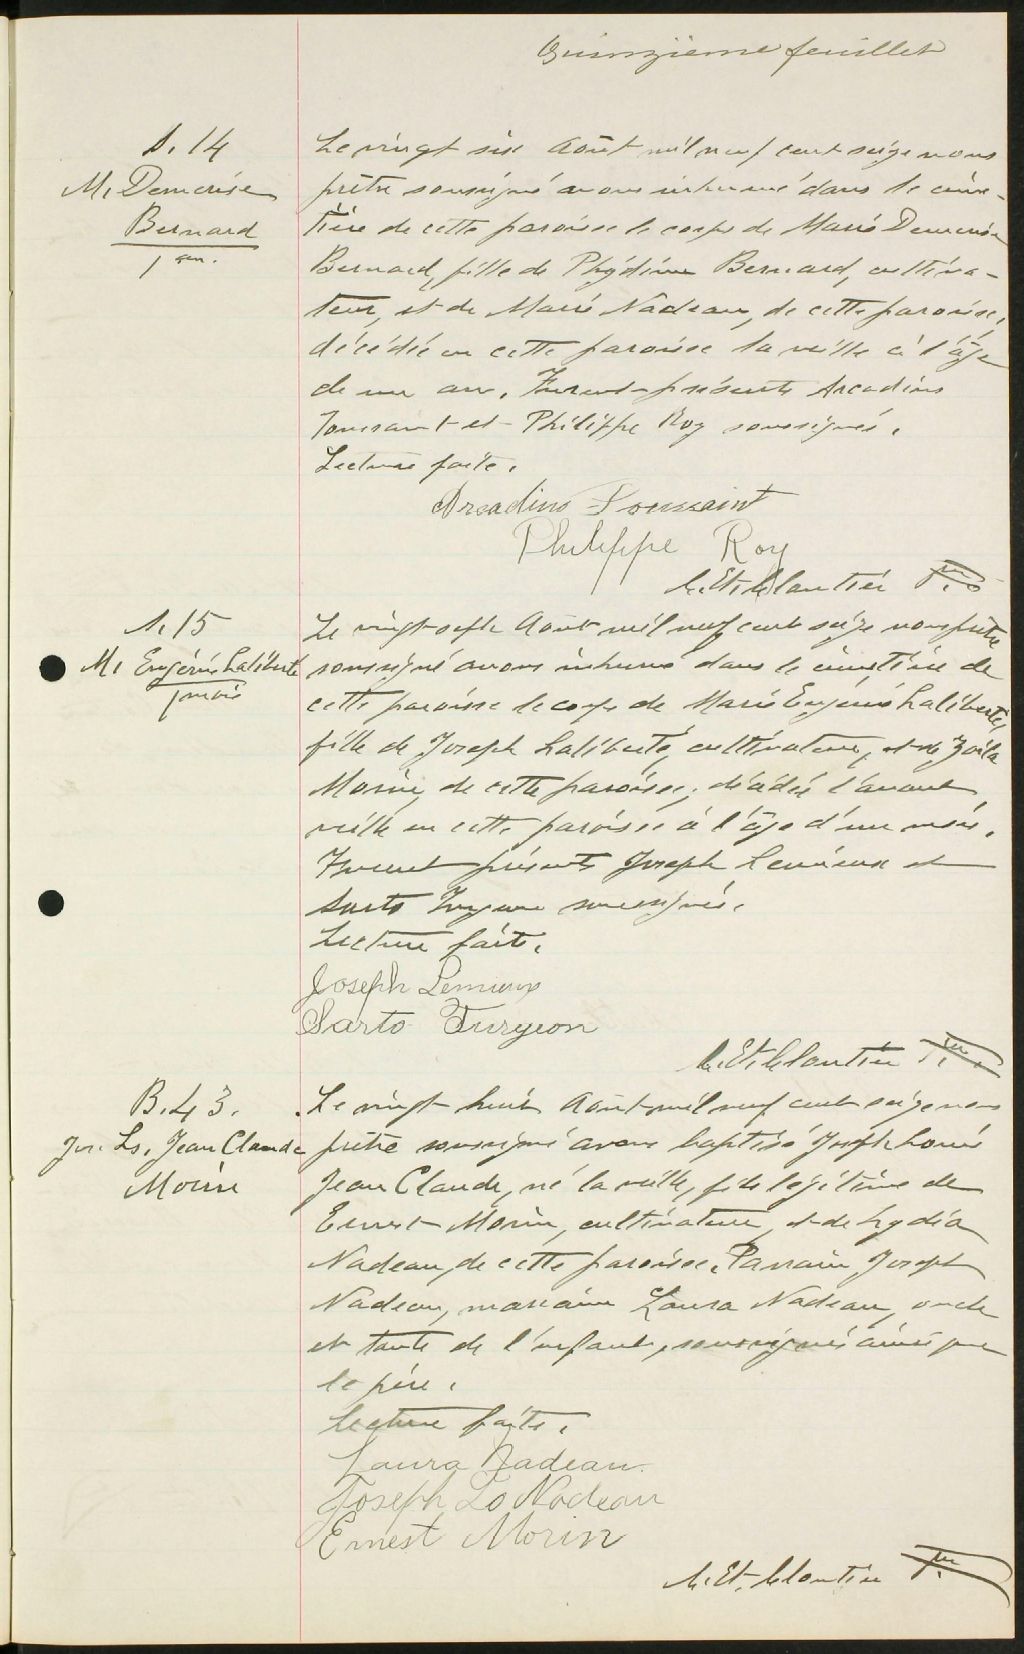 Quinzième feuillet
S. 14
M. Démerise
Bernard
1 an.
Le vingt six Août mil neuf cent seize nous
prêtre soussigné avons inhumé dans le cime-
tière de cette paroisse le corps de Marie Démerise
Bernard, fille de Phydime Bernard, cultiva-
teur, et de Marie Nadeau, de cette paroisse,
décédée en cette paroisse la veille à l'âge
de un an. Furent présents Arcadius
Toussaint et Philippe Roy soussignés.
Lecture faite.
Arcadius Toussaint
Philippe Roy
Ptre
S. 15
M. Eugénie Laliberté
1 mois
Le vingt-sept Août mil neuf cent seize nous prêtre
soussigné avons inhumé dans le cimetière de
cette paroisse le corps de Marie Eugénie Laliberté,
fille de Joseph Laliberté, cultivateur, et de Zoila
Morin, de cette paroisse, décédée l'avant
veille en cette paroisse à l'âge d'un mois.
Furent présents Joseph Lemieux et
Sarto Turgeon soussignés.
Lecture faite.
Joseph Lemieux
Sarto Turgeon
Ptre
B. 43.
Jos. Ls. Jean Claude
Morin
Le vingt huit Août mil neuf cent seize nous
prêtre soussigné avons baptisé Joseph Louis
Jean Claude, né la veille, fils légitime de
Ernest Morin, cultivateur, et de Lydia
Nadeau, de cette paroisse. Parrain Joseph
Nadeau, marraine Laura Nadeau, oncle
et tante de l'enfant, soussignés ainsi que
le père.
Lecture faite.
Laura Nadeau.
Joseph Ls Nadeau
Ernest Morin
Ptre